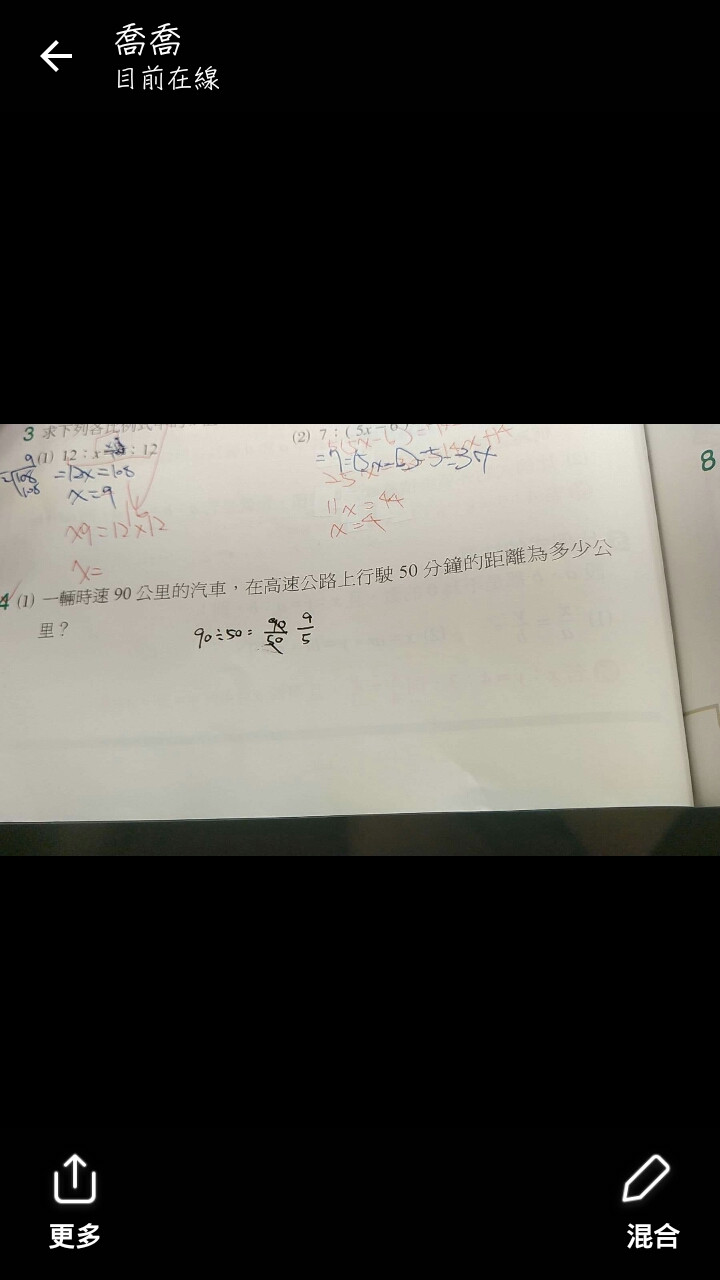 喬喬
目前在線
3 求下列各比例式
(1) 12：x : 12
(2) 7：(5x-6)
9
108
108
=12x=108
x=9
x9=12x12
x=
11x=44
x=4
8
4 (1) 一輛時速 90 公里的汽車，在高速公路上行駛 50 分鐘的距離為多少公
里？
90÷50= 90/50 9/5
更多
混合